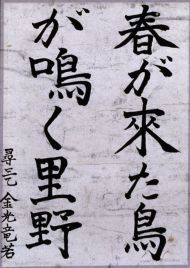 春が來た鳥
が鳴く里野
尋六 金光竜若